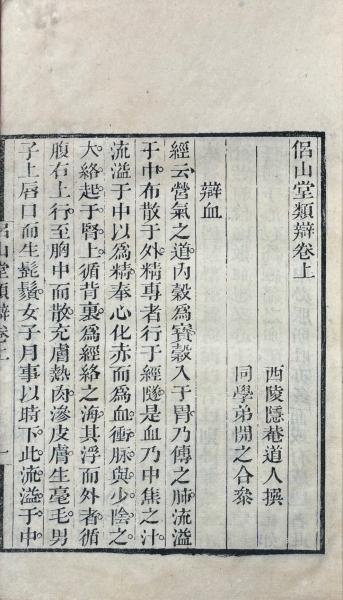 侶山堂類辯卷上
西陵隱菴道人撰
同學弟開之合叅
辯血
經云營氣之道內穀為寶穀入于胃乃傳之肺流溢
于中布散于外精專者行于經隧是血乃中焦之汁
流溢于中以為精奉心化赤而為血衝脈與少陰之
大絡起于腎上循背裏為經絡之海其浮而外者循
腹右上行至胸中而散充膚熱肉滲皮膚生毫毛男
子上唇口而生髭鬚女子月事以時下此流溢于中
侶山堂類辯卷上
一